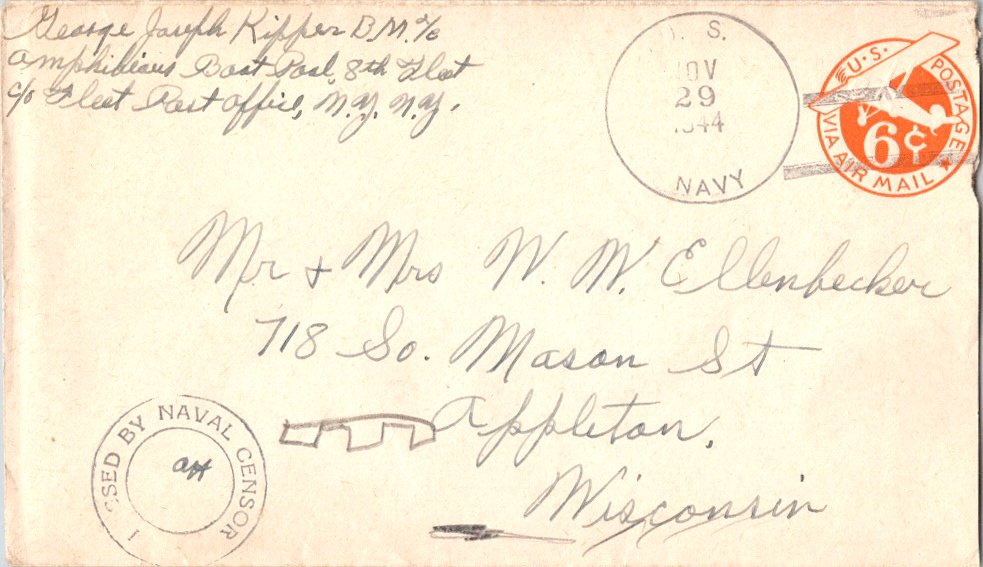 George Joseph Kipper B.M. 2/c
Amphibious Boat Pool, 8th Fleet
c/o Fleet Post Office, N.Y. N.Y.
U. S.
NOV
29
1944
NAVY
U.S. POSTAGE
6¢
VIA AIR MAIL
Mr + Mrs W. W. Ellenbecker
718 So. Mason St
Appleton,
Wisconsin
PASSED BY NAVAL CENSOR